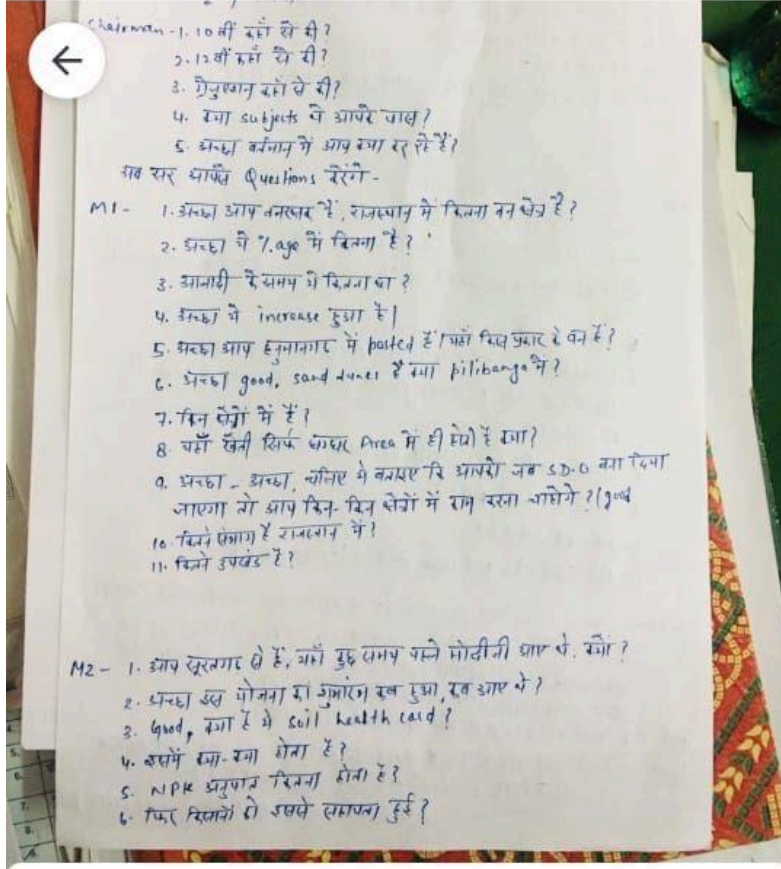 Chairman - 1. 10वीं कहाँ से की?
2. 12वीं कहाँ से की?
3. ग्रेजुएशन कहाँ से की?
4. क्या subjects थे आपके पास?
5. अच्छा वर्तमान में आप क्या कर रहे हैं?
अब सर आपसे Questions करेंगे -
M1 - 1. अच्छा आप वनरक्षक हैं, राजस्थान में कितना वन क्षेत्र है?
2. अच्छा ये %age में कितना है?
3. आजादी के समय ये कितना था?
4. अच्छा ये increase हुआ है|
5. अच्छा आप हनुमानगढ़ में posted हैं| यहाँ किस प्रकार के वन हैं?
6. अच्छा good, sand dunes है क्या pilibanga में?
7. किन क्षेत्रों में हैं?
8. यहाँ खेती सिर्फ घग्घर Area में ही होती है क्या?
9. अच्छा - अच्छा, चलिए ये बताइए कि आपको जब S.D.O बना दिया
जाएगा तो आप किन-किन क्षेत्रों में काम करना चाहोगे?| good
10. कितने संभाग है राजस्थान में?
11. कितने उपखंड है?
M2 - 1. आप सूरतगढ़ से हैं, यहाँ कुछ समय पहले मोदीजी आए थे, क्यों?
2. अच्छा इस योजना का शुभारंभ कब हुआ, कब आए थे?
3. Good, क्या है ये soil health card?
4. इसमें क्या-क्या होता है?
5. NPK अनुपात कितना होता है?
6. फिर किसानों को इससे सहायता हुई?